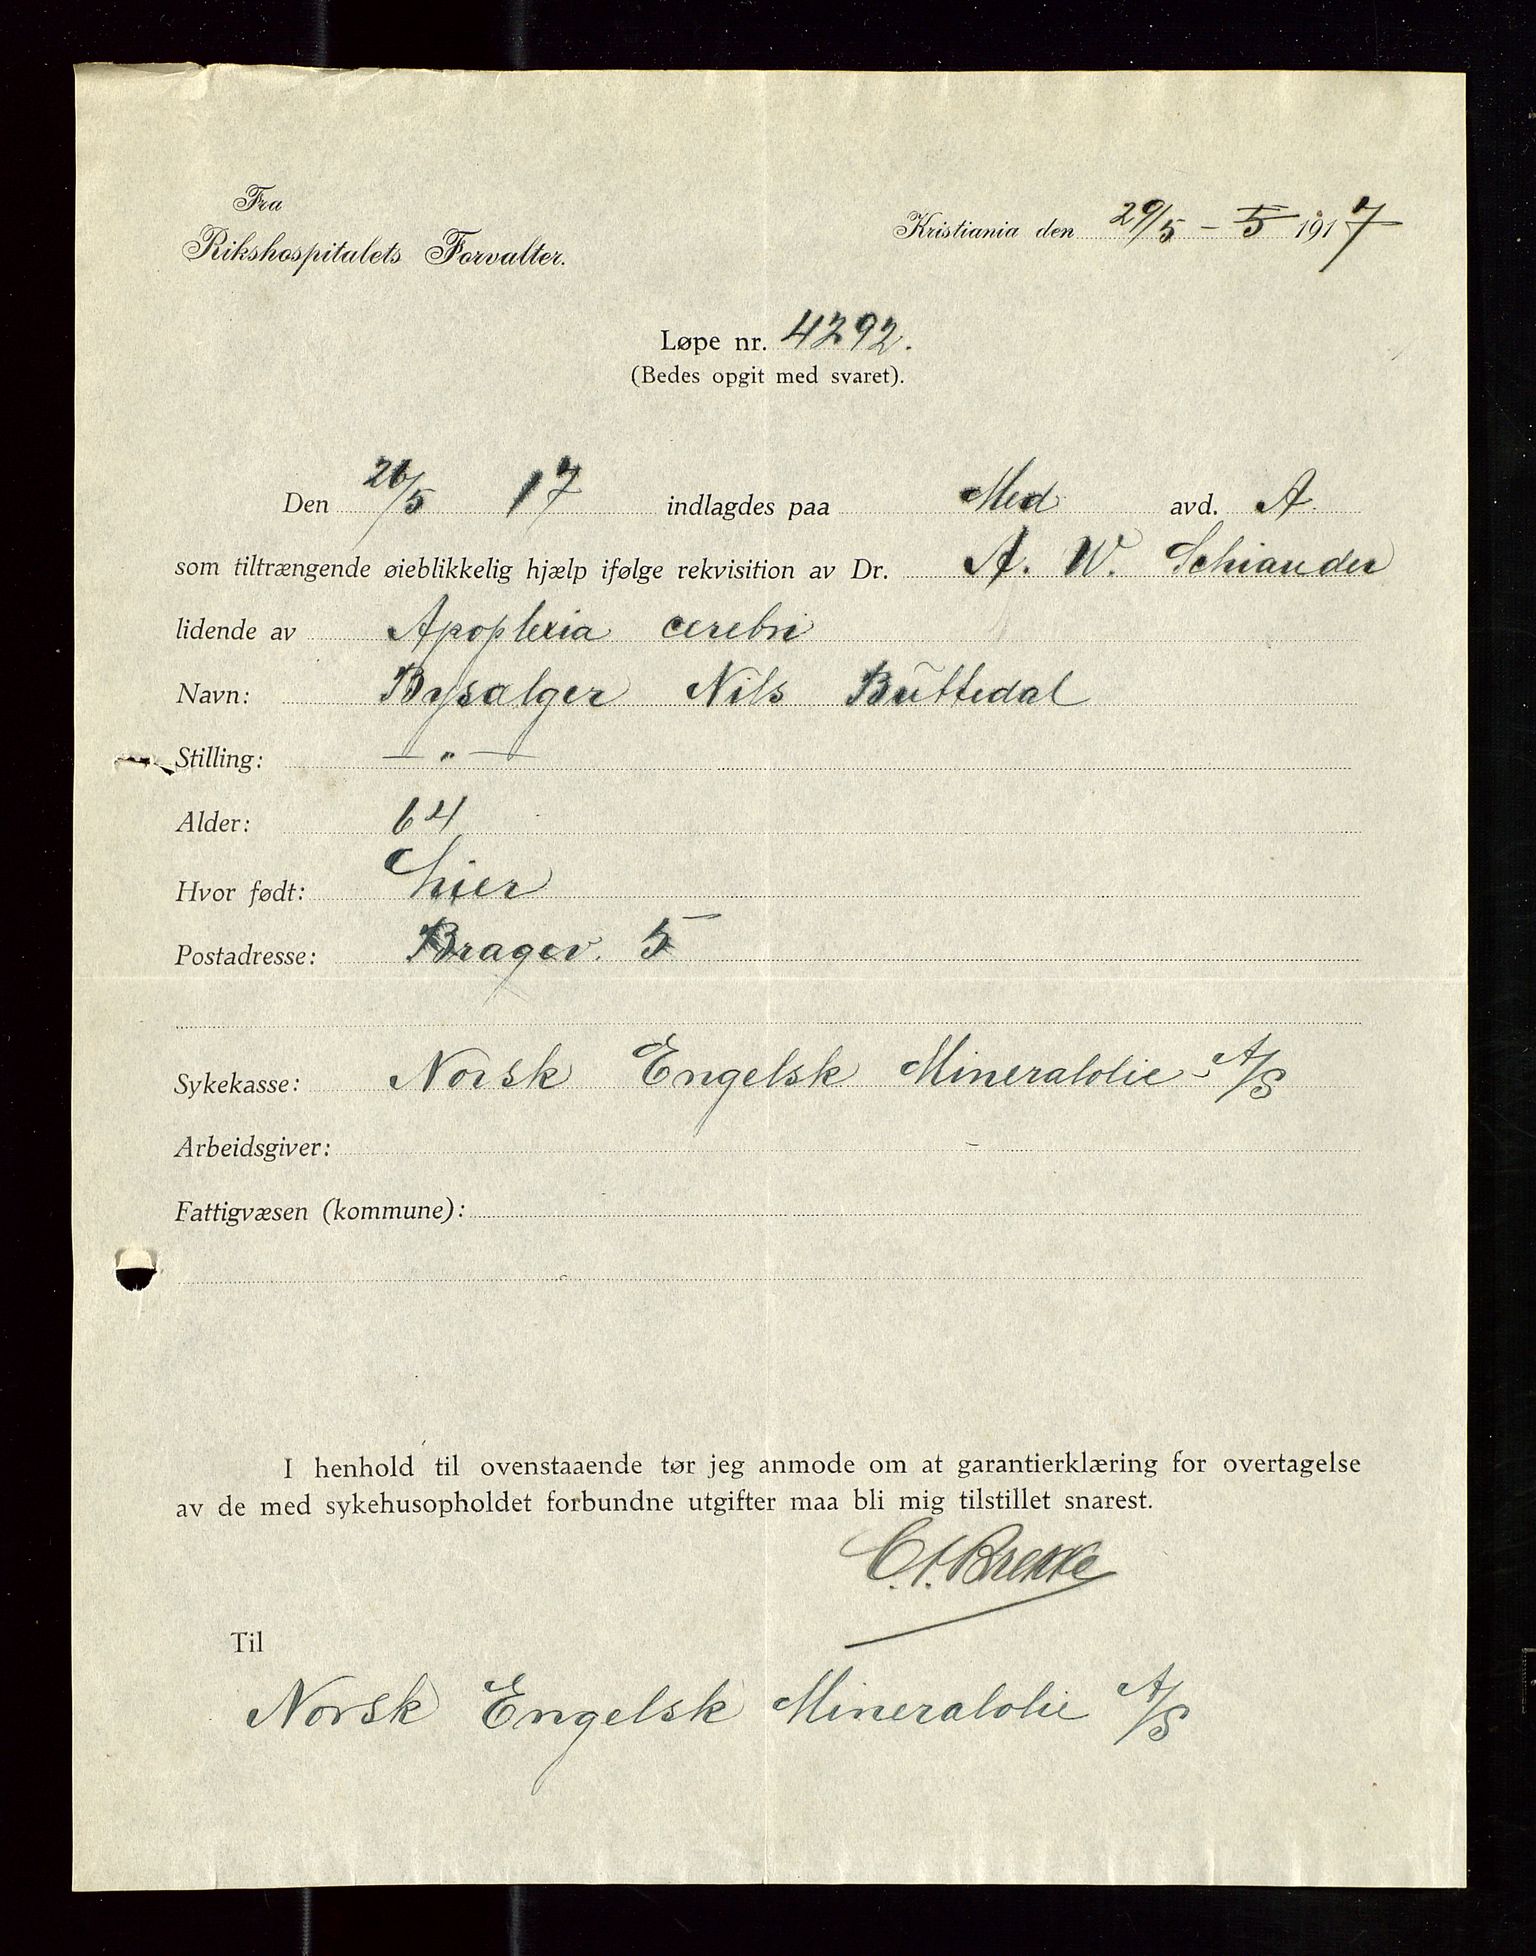 Fra
Rikshospitalets Forvalter.
Kristiania den 29/5 - 5 1917
Løpe nr. 4292.
(Bedes opgit med svaret).
Den 26/5 17 indlagdes paa Med avd. A
som tiltrængende øieblikkelig hjælp ifølge rekvisition av Dr. A. W. Schiander
lidende av Apoplexia cerebri
Navn: Bysalger Nils Büttedal
Stilling: — " —
Alder: 64
Hvor født: Lier
Postadresse: Bragev. 5
Sykekasse: Norsk Engelsk Mineralolie A/S
Arbeidsgiver:
Fattigvæsen (kommune):
I henhold til ovenstaaende tør jeg anmode om at garantierklæring for overtagelse
av de med sykehusopholdet forbundne utgifter maa bli mig tilstillet snarest.
Brekke
Til
Norsk Engelsk Mineralolie A/S